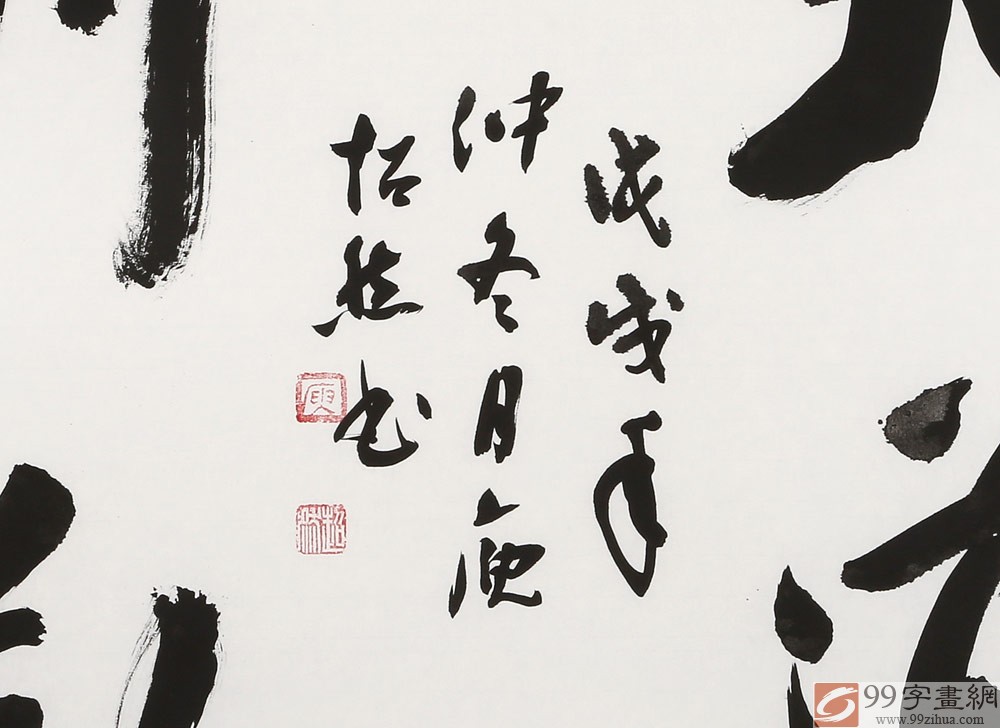 戊戌年
仲冬月庾
超然书
庾
99字畫網
www.99zihua.com